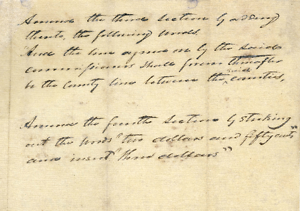 Amend the third Section by adding
thereto, the following words.
And the line agreed on by the said
commissioners shall forever thereafter
be the county line between the said counties,
Amend the fourth Section by striking
out the words "two dollars and fifty cents"
and insert "three dollars"